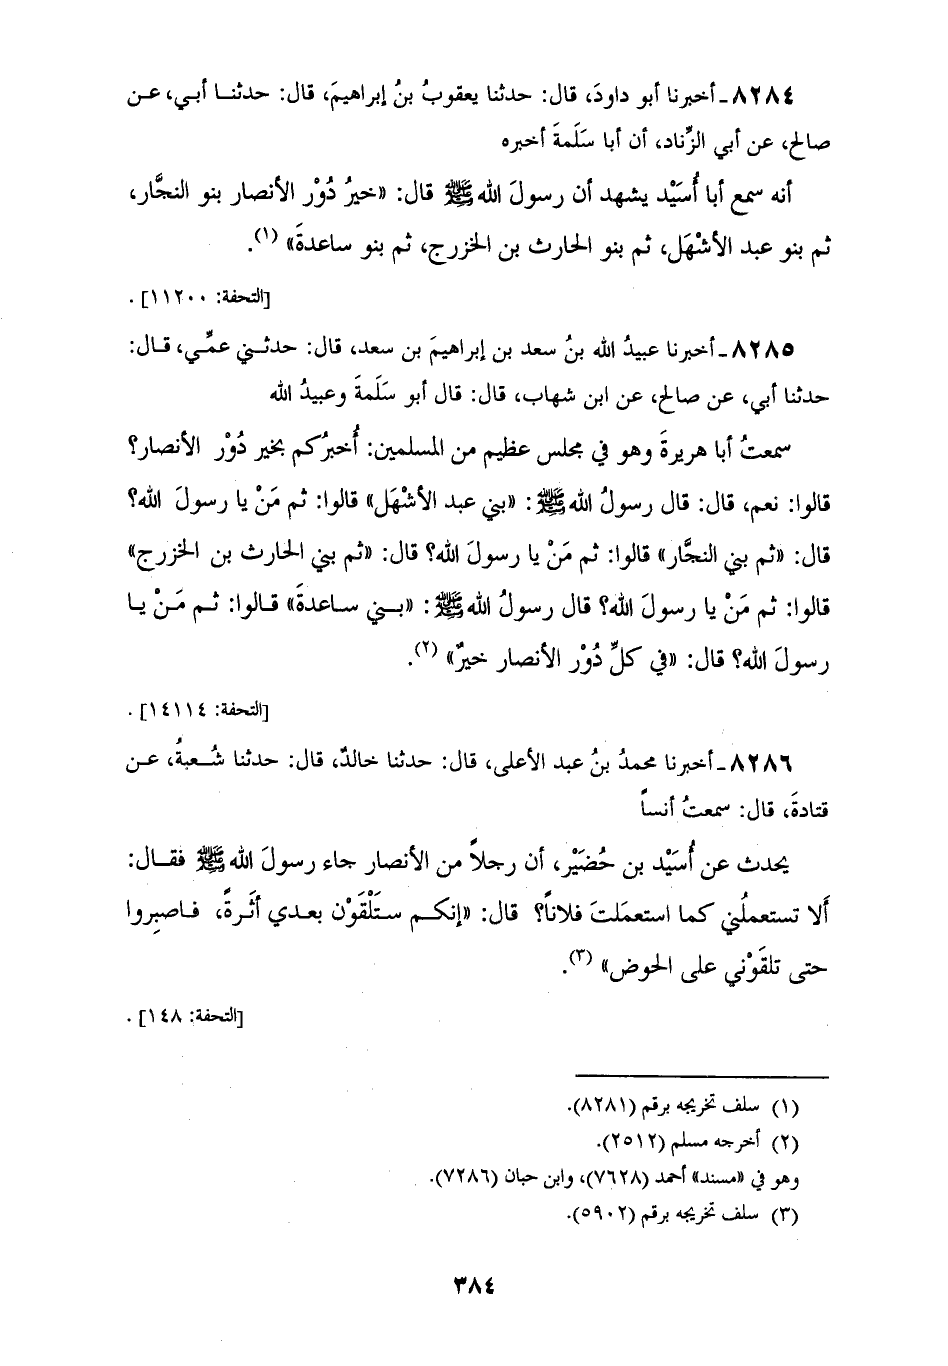 ٨٢٨٤ـ أخبرنا أبو داودَ، قال: حدثنا يعقوبُ بنُ إبراهيمَ، قال: حدثنــا أبــي، عــن
صالح، عن أبي الزِّناد، أن أبا سَلَمةَ أخبره
أنه سمع أبا أُسَيْد يشهد أن رسولَ الله ﷺ قال: «خيرُ دُوْر الأنصار بنو النجَّار،
ثم بنو عبد الأشْهَل، ثم بنو الحارث بن الخزرج، ثم بنو ساعدةَ» (١).
[التحفة: ١١٢٠٠] .
٨٢٨٥ـ أخبرنا عبيدُ الله بنُ سعد بن إبراهيمَ بن سعد، قال: حدثــني عمِّــي، قــال:
حدثنا أبي، عن صالح، عن ابن شهاب، قال: قال أبو سَلَمةَ وعبيدُ الله
سمعتُ أبا هريرةَ وهو في مجلس عظيم من المسلمين: أُخبرُكم بخير دُوْر الأنصار؟
قالوا: نعم، قال: قال رسولُ الله ﷺ: «بني عبد الأشْهَل» قالوا: ثم مَنْ يا رسولَ الله؟
قال: «ثم بني النجَّار» قالوا: ثم مَنْ يا رسولَ الله؟ قال: «ثم بني الحارث بن الخزرج»
قالوا: ثم مَنْ يا رسولَ الله؟ قال رسولُ الله ﷺ: «بــني ســاعدةَ» قــالوا: ثــم مَــنْ يــا
رسولَ الله؟ قال: «في كلِّ دُوْر الأنصار خيرٌ» (٢).
[التحفة: ١٤١١٤] .
٨٢٨٦ـ أخبرنا محمدُ بنُ عبد الأعلى، قال: حدثنا خالدٌ، قال: حدثنا شُــعبةُ، عــن
قتادةَ، قال: سمعتُ أنساً
يحدث عن أُسَيْد بن حُضَيْر، أن رجلاً من الأنصار جاء رسولَ الله ﷺ فقــال:
أَلا تستعملُني كما استعمَلتَ فلاناً؟ قال: «إنكــم ســتَلْقَوْن بعــدي أَثَــرةً، فــاصبِروا
حتى تلقَوْني على الحوض» (٣).
[التحفة: ١٤٨] .
(١) سلف تخريجه برقم (٨٢٨١).
(٢) أخرجه مسلم (٢٥١٢).
وهو في «مسند» أحمد (٧٦٢٨)، وابن حبان (٧٢٨٦).
(٣) سلف تخريجه برقم (٥٩٠٢).
٣٨٤